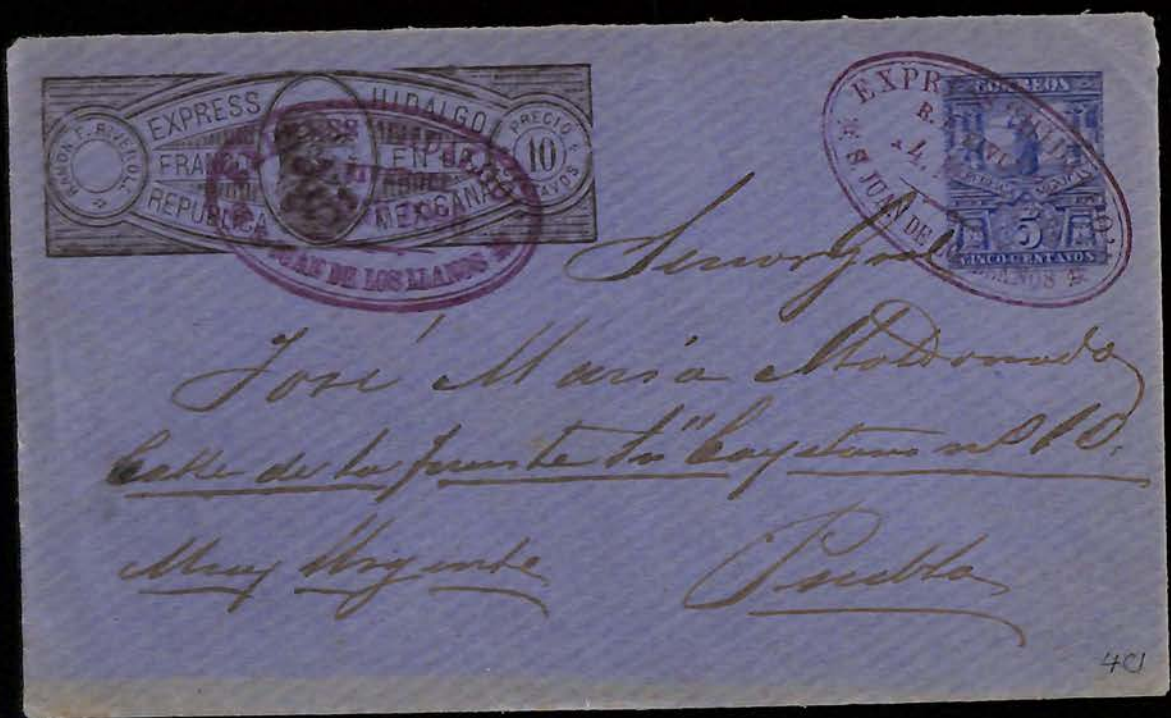 RAMON F. RIVEROLL
EXPRESS HIDALGO
FRANCO EN LA
REPUBLICA MEXICANA
PRECIO
10
CENTAVOS
JUAN DE LOS LLANOS
EXPRESS HIDALGO
S. JUAN DE LOS LLANOS
CORREOS
MEXICANOS
5
CINCO CENTAVOS
Señor Gral
José María Maldonado
Calle de la fuente Sn Cayetano nº 10.
Muy Urgente
Puebla